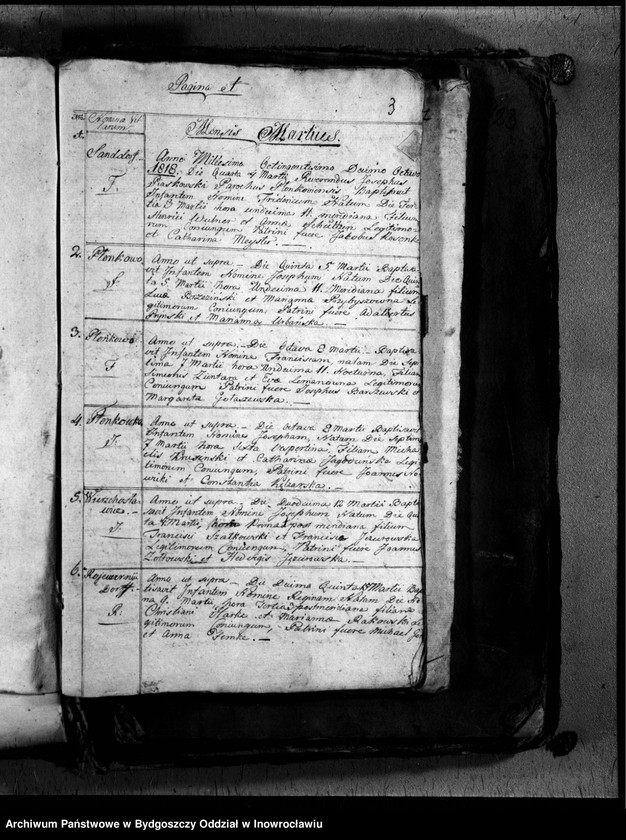 Pagina et
3
Nomina Villarum
Mensis Martius.
1.
Sanddorf
F.
Anno Millesimo Octingentesimo Decimo Octavo
1818. Die Quarta 4 Martii Reverendus Josephus
Piaskowski Parochus Płonkoviensis Baptisavit
Infantem Nomine Fridericum Natum Die Ter-
tia 3 Martii hora undecima 11. meridiana filium
et Anna Legitimo-
rum Coniungum Patrini fuere Jakobus
et Catharina Meyster.
2.
Płonkowo
J.
Anno ut supra. Die Quinta 5 Martii Baptisa-
vit Infantem Nomine Josephum Natum Die Quin-
ta 5. Martii hora Undecima 11. Meridiana filium
Brzeziński et Marianna Przybyszowna Le-
gitimorum Coniungum, Patrini fuere Adalbertus
et Marianna Urbańska.
3.
Płonkowo
F
Anno ut supra. Die Octava 8 Martii Baptisa-
vit Infantem Nomine Franciscam, natam Die Sep-
tima 7 Martii hora Undecima 11. Nocturna, filiam
et Eva Legitimorum
Coniungum Patrini fuere Josephus Barszewski et
Margareta Gołaszewska.
4.
Płonkowko
J.
Anno ut supra. Die octava 8 Martii Baptisavit
Infantem Nomine Josepham, Natam Die Septima
7 Martii hora Sexta Vespertina, filiam Micha-
elis et Catharina Legi-
timorum Coniungum, Patrini fuere Joannes No-
wicki et Constantia
5.
Wierzchosła-
wice.
J.
Anno ut supra Die Duodecima 12 Martii Bapti-
savit Infantem Nomine Josephum Natum Die Qua-
ta Martii, hora Prima 1 post meridiana filium
Francisci Szatkowski et Francisca
Legitimorum Coniungum, Patrini fuere Joannes
Zołtowski et Hedvigis
6.
Kojewerrin
Dorff.
R.
Anno ut supra Die Decima Quinta 15 Martii Bap-
tisavit Infantem Nomine Reginam Natam Die No-
na 9. Martii hora Tertia 3 postmeridiana filiam
Christiani Warke et Marianna Rakowska Le-
gitimorum Coniungum, Patrini fuere Michael
et Anna Temke.
Archiwum Państwowe w Bydgoszczy Oddział w Inowrocławiu